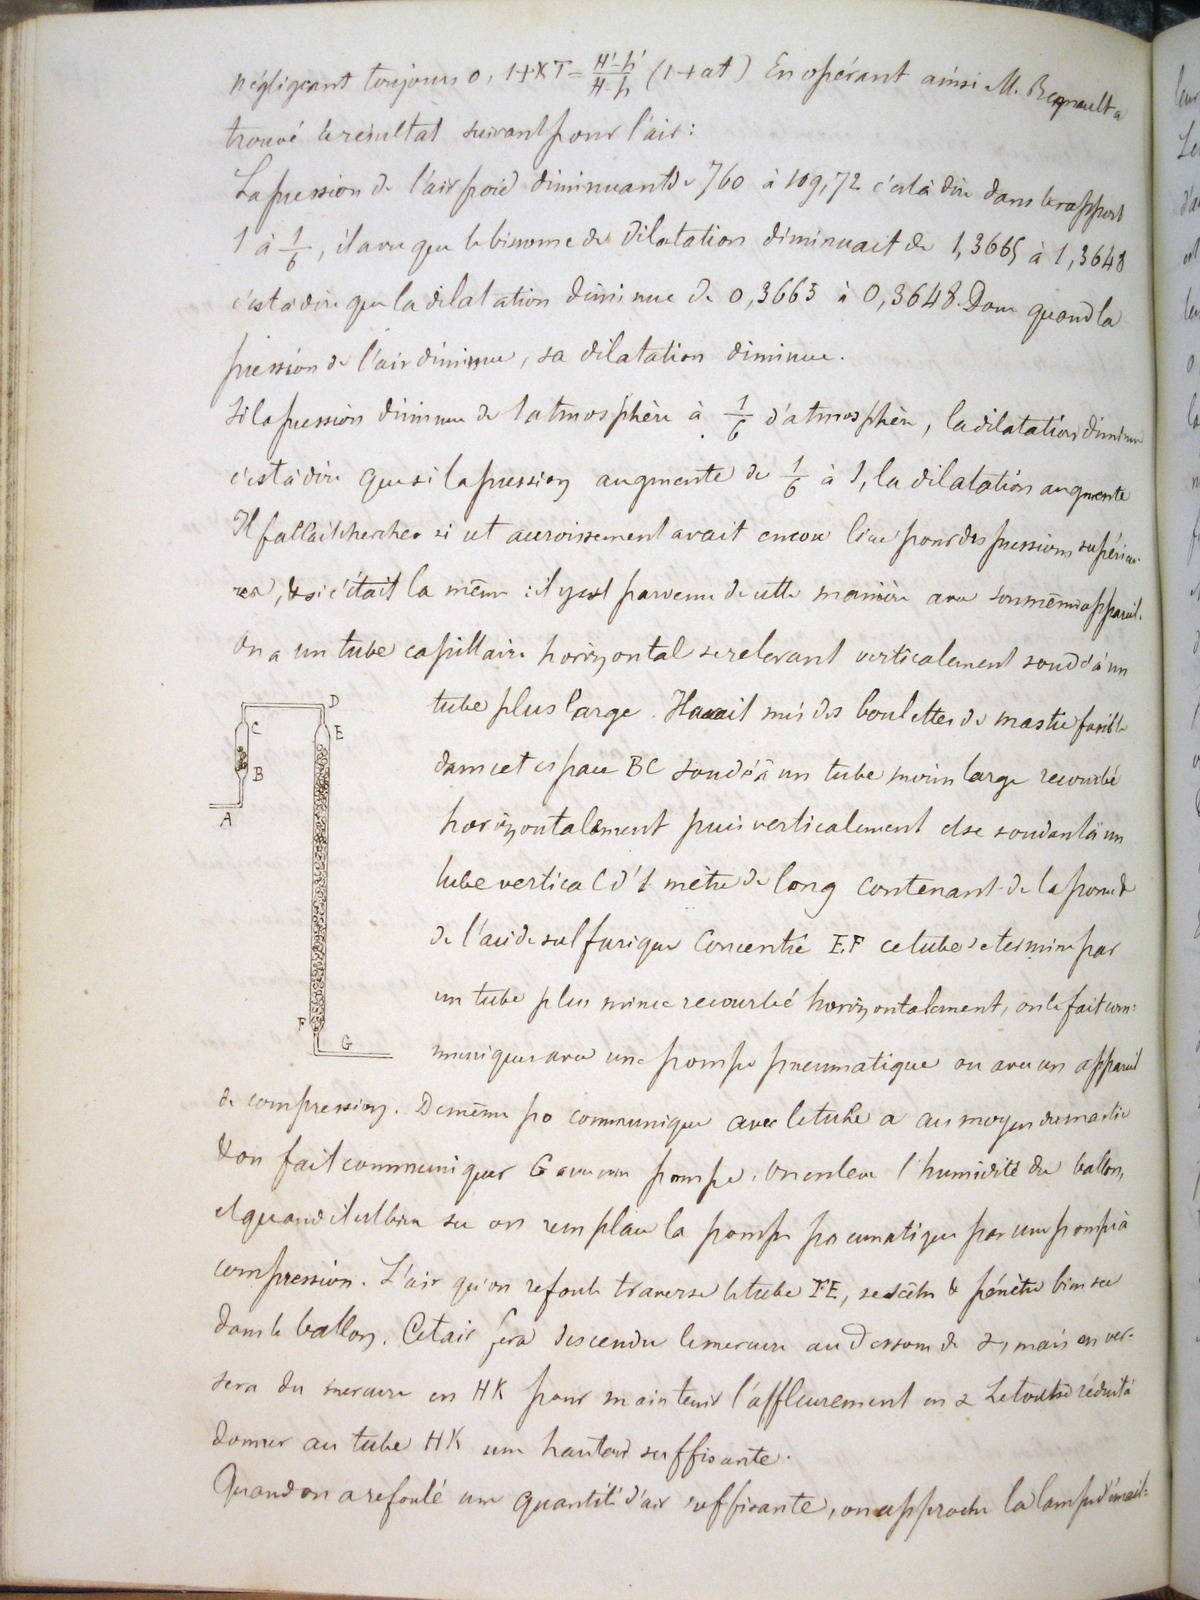 négligeant toujours o, 1+KT = H'-h'/H-h (1+at) En opérant ainsi M. Regnault a
trouvé le résultat suivant pour l'air :
La pression de l'air froid diminuant de 760 à 109,72 c'est à dire dans le rapport
1 à 1/6, il a vu que le binome de dilatation diminuait de 1,3665 à 1,3648
c'est à dire que la dilatation diminue de 0,3665 à 0,3648. Donc quand la
pression de l'air diminue, sa dilatation diminue.
Si la pression diminue de 1 atmosphère à 1/6 d'atmosphère, la dilatation diminue
c'est à dire que si la pression augmente de 1/6 à 1, la dilatation augmente
Il fallait chercher si cet accroissement avait encore lieu pour des pressions supérieu-
res, & si c'était la même : il y est parvenu de cette manière avec son même appareil.
On a un tube capillaire horizontal se relevant verticalement soudé à un
tube plus large. Il avait mis des boulettes de mastic fusible
dans cet espace BC soudé à un tube moins large recourbé
horizontalement puis verticalement et se soudant à un
tube vertical d'1 mètre de long contenant de la ponce &
de l'acide sulfurique concentré EF ce tube se termine par
un tube plus mince recourbé horizontalement, on le fait com-
muniquer avec une pompe pneumatique ou avec un appareil
de compression. De même po communique avec le tube a au moyen du mastic
& on fait communiquer G avec une pompe. On enlève l'humidité du ballon,
et quand il est bien sec on remplace la pompe pneumatique par une pompe à
compression. L'air qu'on refoule traverse le tube FE, se sèche & pénètre bien sec
dans le ballon. Cet air fera descendre le mercure au dessous de α, mais on ver-
sera du mercure en HK pour maintenir l'affleurement en α Le tout se réduit à
donner au tube HK une hauteur suffisante.
Quand on a refoulé une quantité d'air suffisante, on approche la lampe d'émail-
D
C
E
B
A
F
G